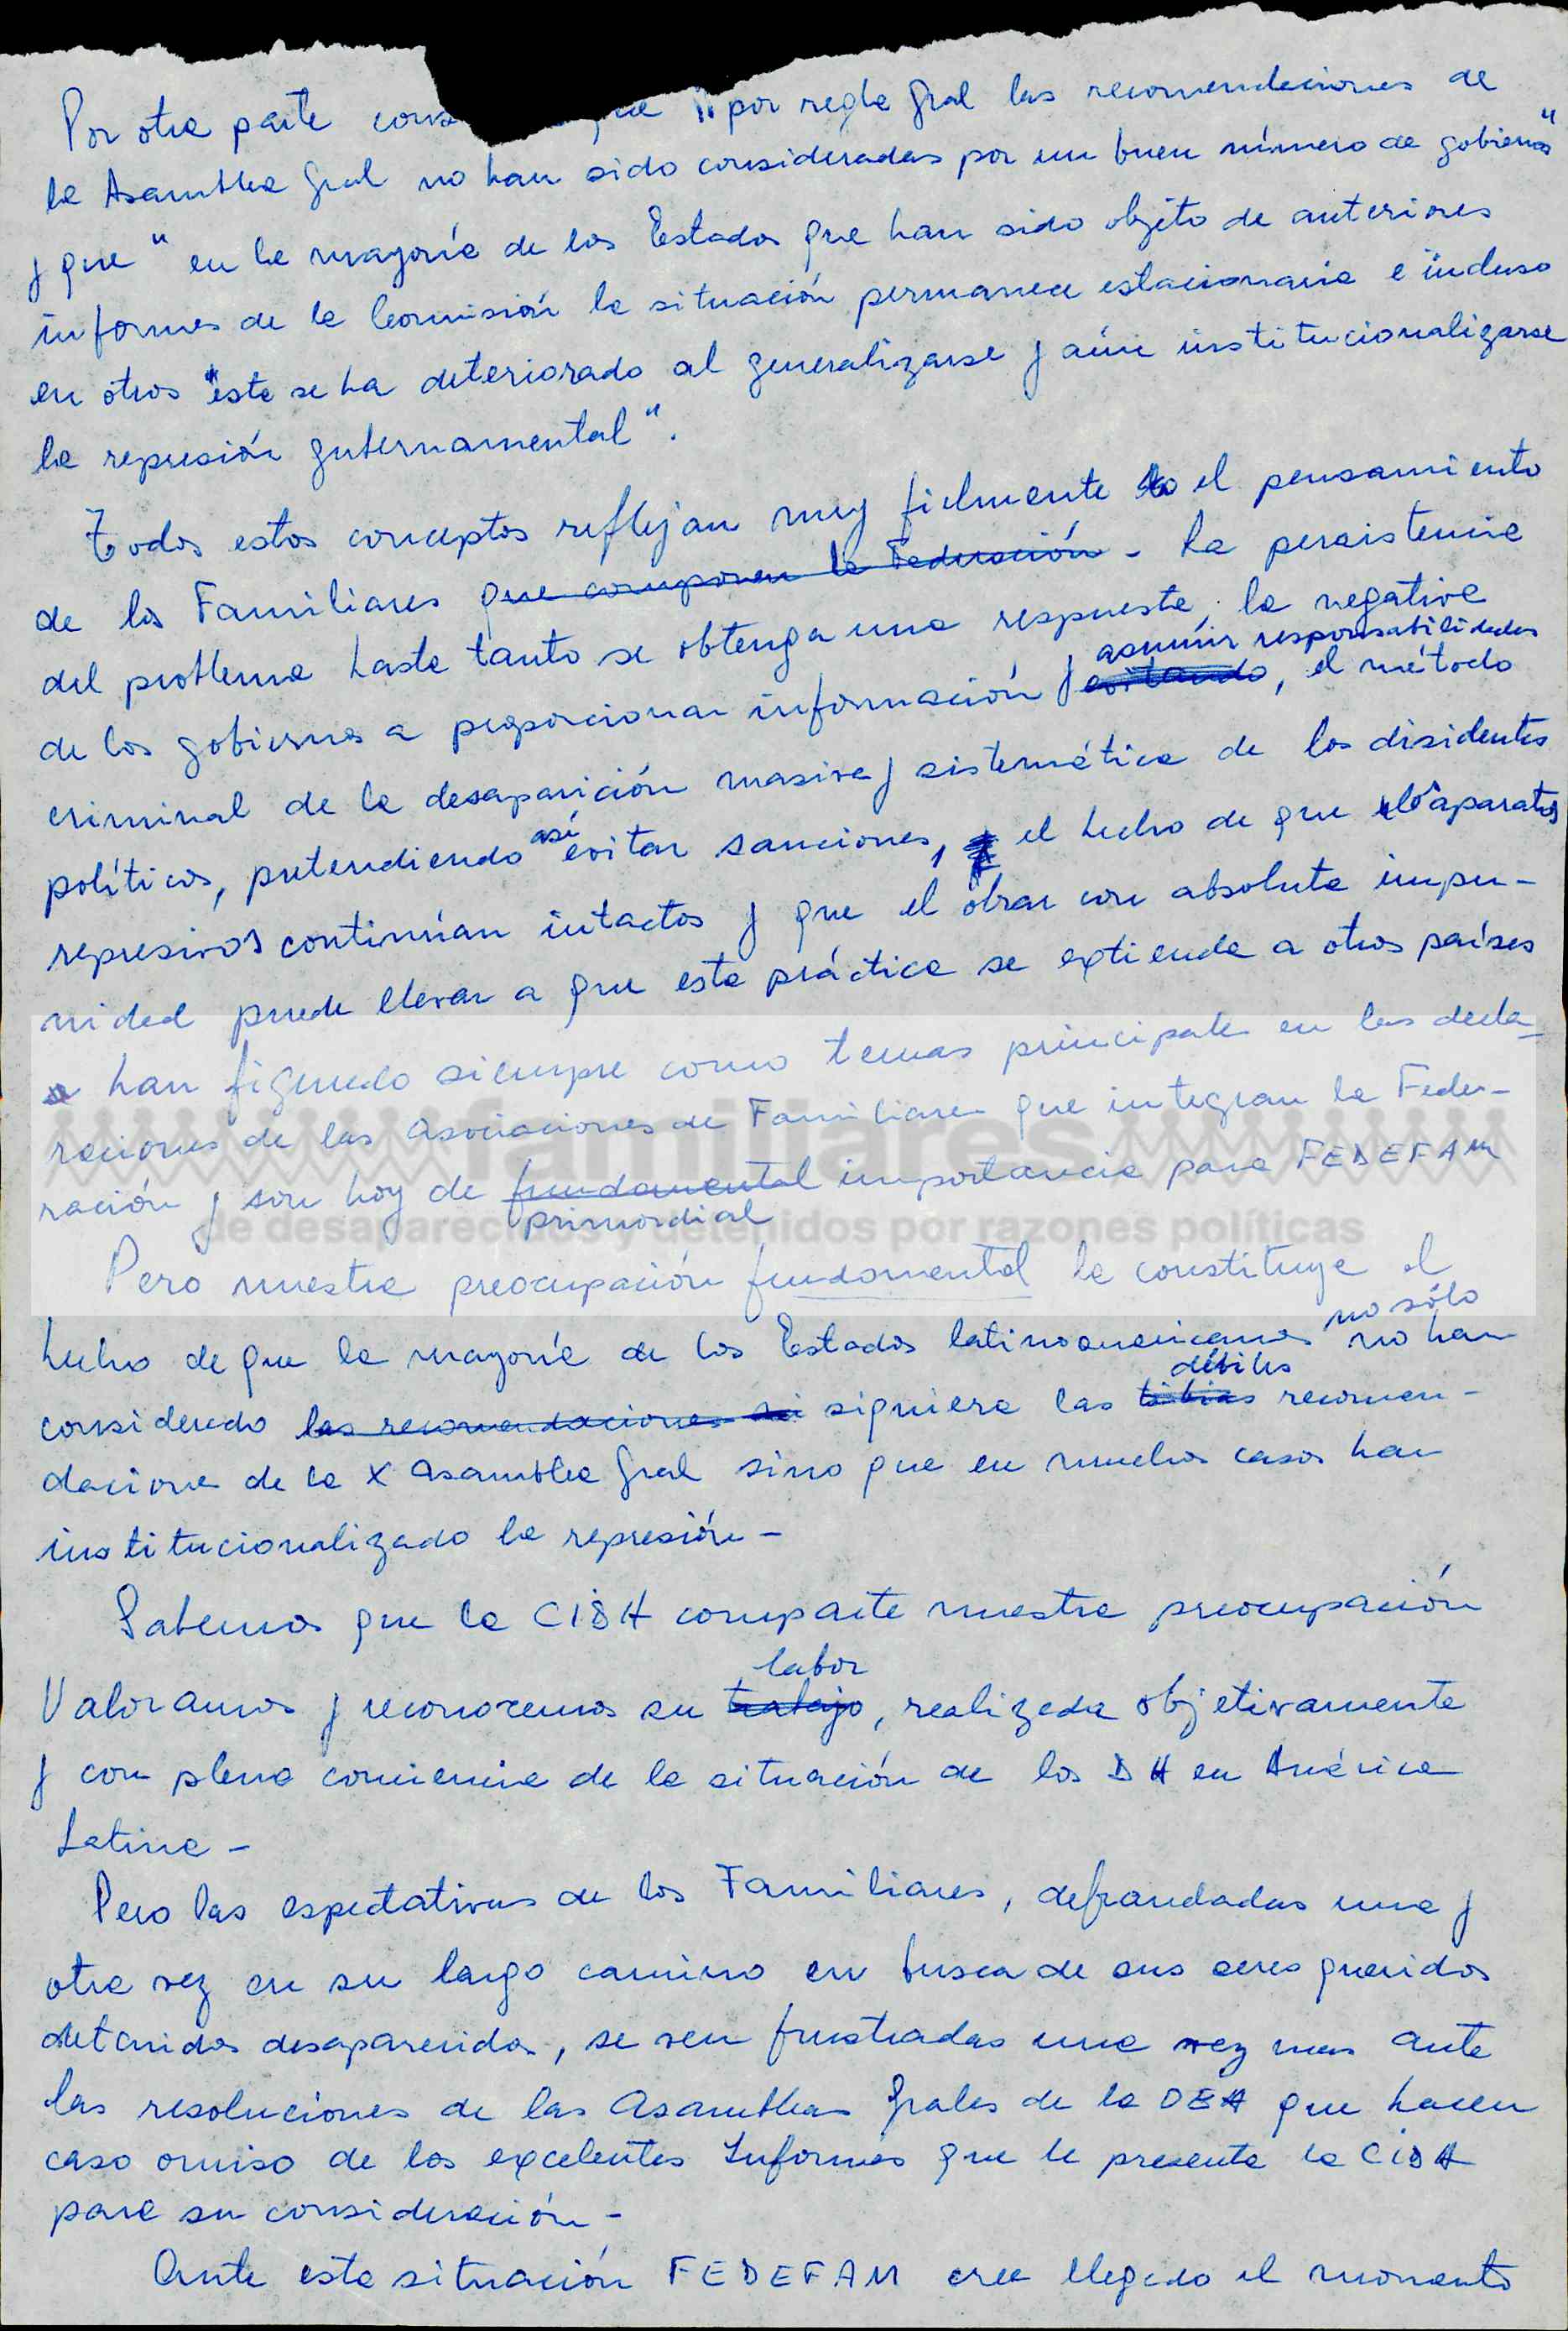 Por otra parte cons que "por regla gral las recomendaciones de
la Asamblea Gral no han sido consideradas por un buen número de gobiernos"
y que "en la mayoría de los Estados que han sido objeto de anteriores
informes de la Comisión la situación permanece estacionaria e incluso
en otros ésta se ha deteriorado al generalizarse y aún institucionalizarse
la represión gubernamental".
Todos estos conceptos reflejan muy fielmente el pensamiento
de los Familiares que componen la Federación - La persistencia
del problema hasta tanto se obtenga una respuesta, la negativa
asumir responsabilidades
de los gobiernos a proporcionar información y evitando, el método
criminal de la desaparición masiva y sistemática de los disidentes
así
políticos, pretendiendo evitar sanciones, el hecho de que los aparatos
represivos continúan intactos y que el obrar con absoluta impu-
nidad puede llevar a que esta práctica se extienda a otros países
han figurado siempre como temas principales en las decla-
raciones de las Asociaciones de Familiares que integran la Fede-
ración y son hoy de fundamental importancia para FEDEFAM
primordial
familiares
de desaparecidos y detenidos por razones políticas
Pero nuestra preocupación fundamental la constituye el
no sólo
hecho de que la mayoría de los Estados latinoamericanos no han
débiles
considerado las recomendaciones ni siquiera las tibias recomen-
daciones de la X Asamblea Gral sino que en muchos casos han
institucionalizado la represión -
Sabemos que la CIDH comparte nuestra preocupación
labor
Valoramos y reconocemos su trabajo, realizada objetivamente
y con plena conciencia de la situación de los DH en América
Latina -
Pero las espectativas de los Familiares, defraudadas una y
otra vez en su largo camino en busca de sus seres queridos
detenidos desaparecidos, se ven frustradas una vez mas ante
las resoluciones de las Asambleas Grales de la OEA que hacen
caso omiso de los excelentes Informes que le presenta la CIDH
para su consideración -
Ante esta situación FEDEFAM cree llegado el momento